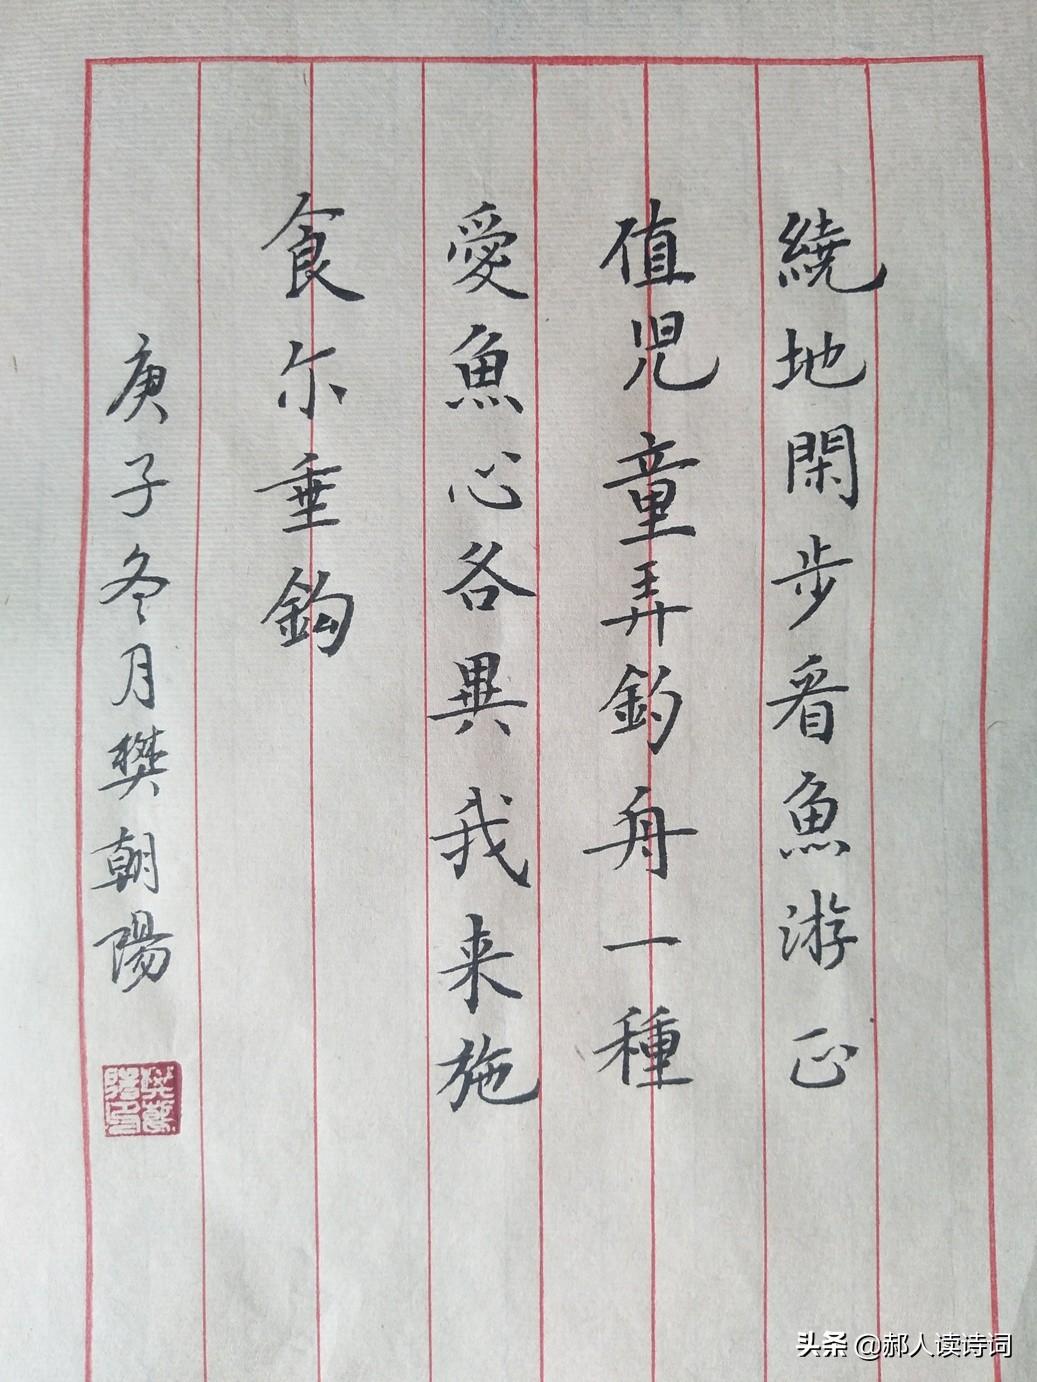 繞地閑步看魚游正
值児童弄釣舟一種
愛魚心各異我来施
食尔垂鈎
庚子冬月樊朝陽
头条 @郝人读诗词